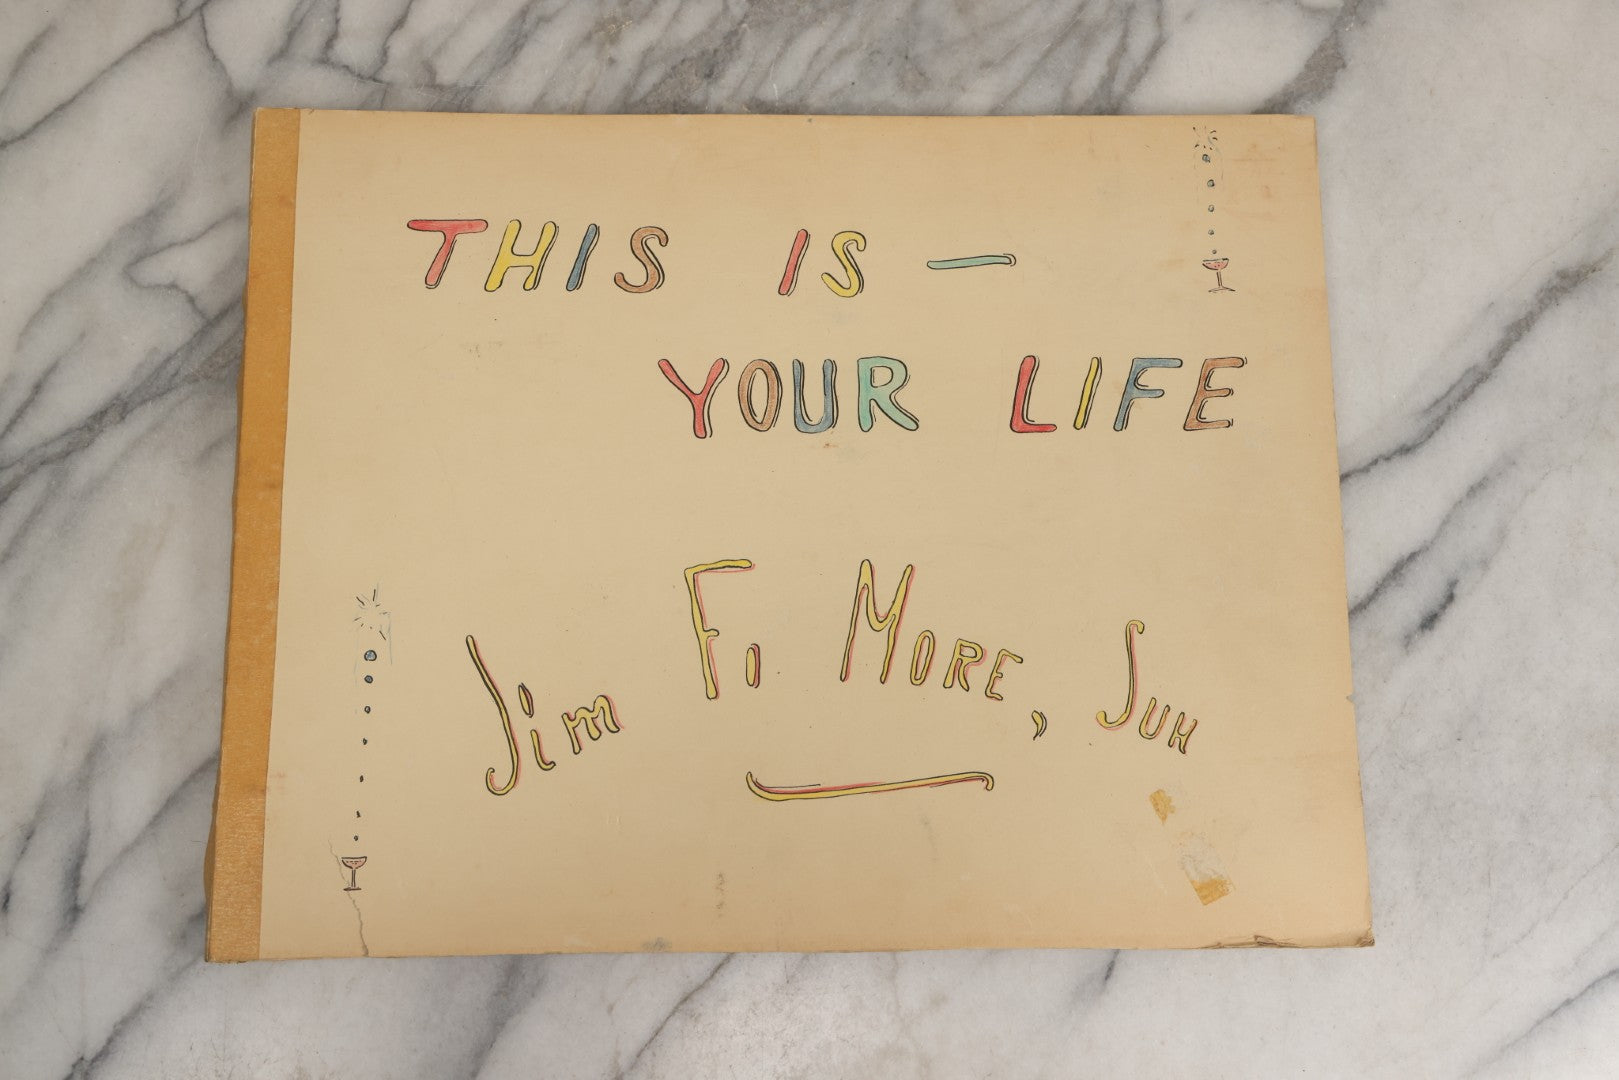 THIS IS —
YOUR LIFE
Jim Fi More, Suh